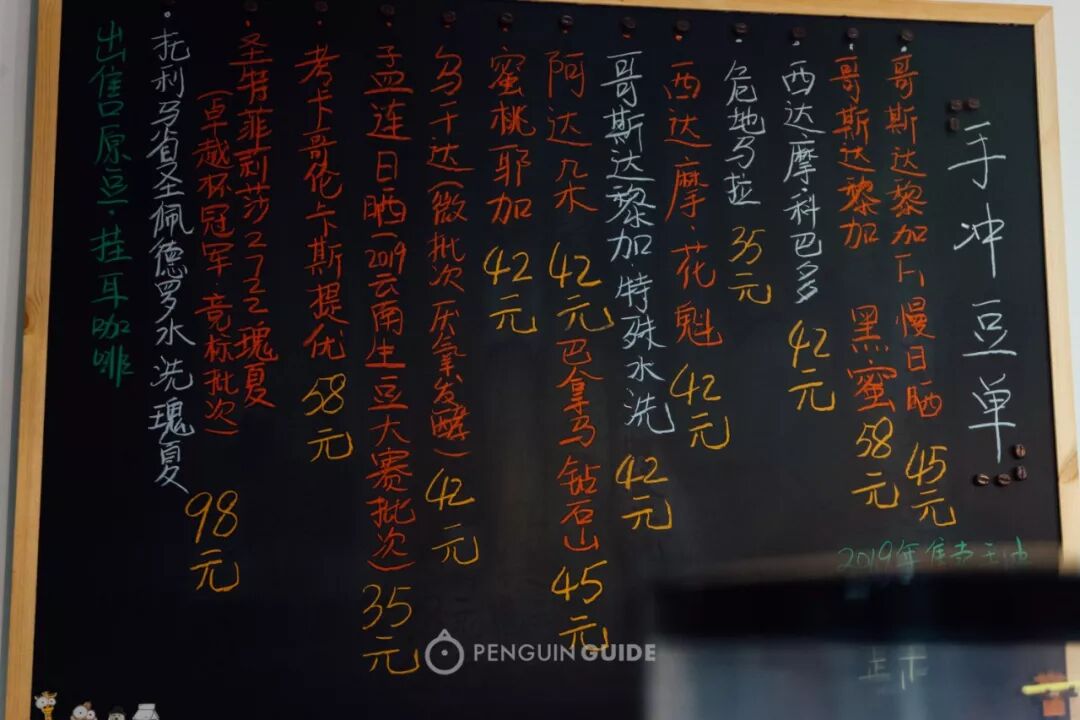 手冲豆单
哥斯达黎加 慢日晒 45元
哥斯达黎加 黑蜜 58元
西达摩·科巴多 42元
危地马拉 35元
西达摩·花魁 42元
哥斯达黎加·特殊水洗 42元
阿达几木 42元 巴拿马 钻石山 45元
蜜桃耶加 42元
乌干达(微批次 厌氧发酵) 42元
孟连日晒(2019云南生豆大赛批次) 35元
考卡哥伦卡斯提优 58元
圣特菲利莎2722瑰夏
(卓越杯冠军·竞标批次)
托利马省圣佩德罗水洗瑰夏 98元
出售原豆·挂耳咖啡
2019年
PENGUIN GUIDE